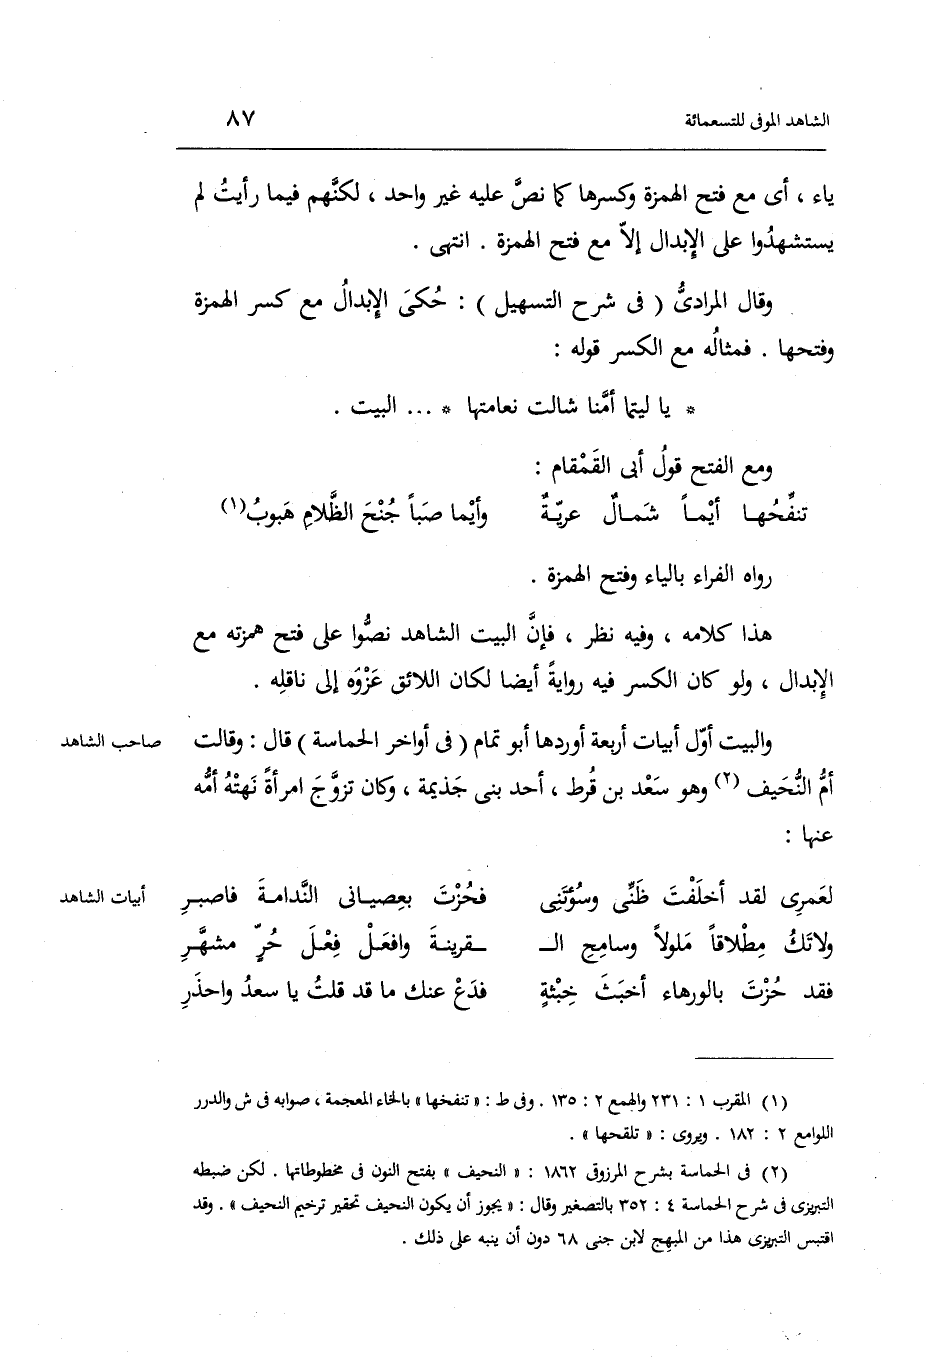 الشاهد الموفى للتسعمائة ٨٧
ياء ، أى مع فتح الهمزة وكسرها كما نصَّ عليه غير واحد ، لكنَّهم فيما رأيتُ لم
يستشهدُوا على الإِبدال إلاّ مع فتح الهمزة . انتهى .
وقال المرادىُّ ( فى شرح التسهيل ) : حُكىَ الإِبدالُ مع كسر الهمزة
وفتحها . فمثالُه مع الكسر قوله :
* يا ليتما أمَّنا شالت نعامتها * ... البيت .
ومع الفتح قولُ أبى القَمْقام :
تنفِّحُهـا أيْمـاً شَمـالٌ عريّـةٌ وأيْما صَباً جُنْحَ الظَّلامِ هَبوبُ(١)
رواه الفراء بالياء وفتح الهمزة .
هذا كلامه ، وفيه نظر ، فإنَّ البيت الشاهد نصُّوا على فتح همزته مع
الإِبدال ، ولو كان الكسر فيه روايةً أيضا لكان اللائق عَزْوَه إلى ناقلِه .
والبيت أوّل أبيات أربعة أوردها أبو تمام ( فى أواخر الحماسة ) قال : وقالت صاحب الشاهد
أمُّ النُّحَيف (٢) وهو سَعْد بن قُرط ، أحد بنى جَذيمة ، وكان تزوَّجَ امرأةً نَهتْهُ أمُّه
عنها :
لعَمرِى لقد أخلَفْتَ ظَنِّى وسُؤتَنِى فحُزْتَ بعِصيـانى النَّدامـةَ فاصبـرِ أبيات الشاهد
ولاتَكُ مِطْلاقاً مَلولاً وسامِحِ الـ ـقرينـةَ وافعَلْ فِعْلَ حُرٍّ مشهَّـرِ
فقد حُزْتَ بالورهاء أخبَثَ خِبْثةٍ فدَعْ عنك ما قد قلتُ يا سعدُ واحذَرِ
(١) المقرب ١ : ٢٣١ والهمع ٢ : ١٣٥ . وفى ط : « تنفخها » بالخاء المعجمة ، صوابه فى ش والدرر
اللوامع ٢ : ١٨٢ . ويروى : « تلقحها » .
(٢) فى الحماسة بشرح المرزوق ١٨٦٢ : « النحيف » بفتح النون فى مخطوطاتها . لكن ضبطه
التبريزى فى شرح الحماسة ٤ : ٣٥٢ بالتصغير وقال : « يجوز أن يكون النحيف تحقير ترخيم النحيف » . وقد
اقتبس التبريزى هذا من المبهج لابن جنى ٦٨ دون أن ينبه على ذلك .